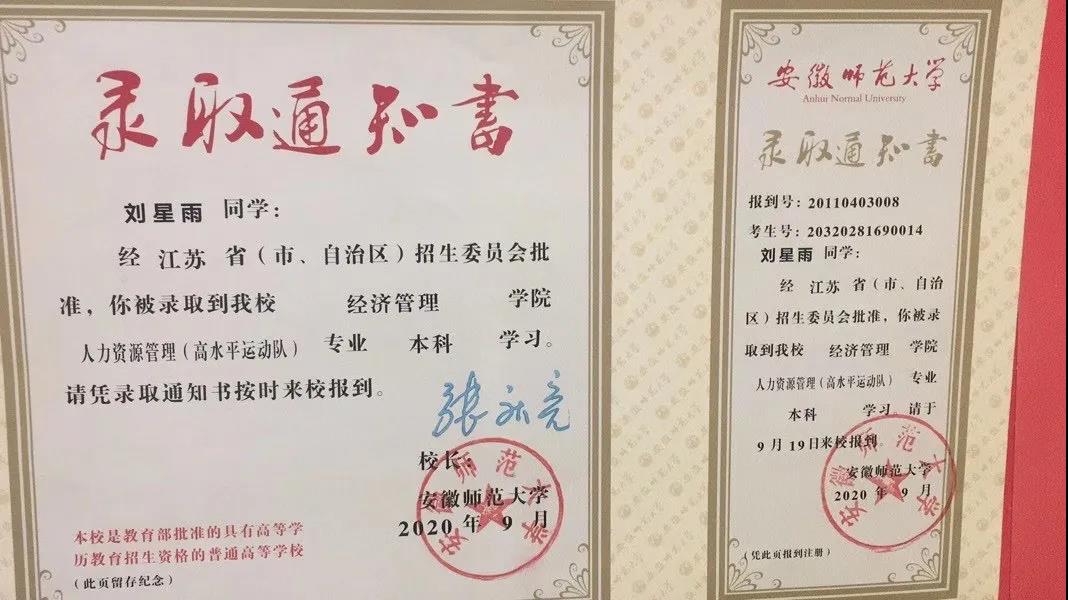 录取通知书
刘星雨 同学：
经 江苏 省（市、自治区）招生委员会批
准，你被录取到我校 经济管理 学院
人力资源管理（高水平运动队） 专业 本科 学习。
请凭录取通知书按时来校报到。
张庆亮
校长：
安徽师范大学
2020 年 9 月
安徽师范大学
本校是教育部批准的具有高等学
历教育招生资格的普通高等学校
（此页留存纪念）
安徽师范大学
Anhui Normal University
录取通知书
报到号：20110403008
考生号：20320281690014
刘星雨 同学：
经 江苏 省（市、自治
区）招生委员会批准，你被录
取到我校 经济管理 学院
人力资源管理（高水平运动队） 专业
本科 学习，请于
9 月 19日来校报到。
安徽师范大学
2020 年 9 月
安徽师范大学
（凭此页报到注册）